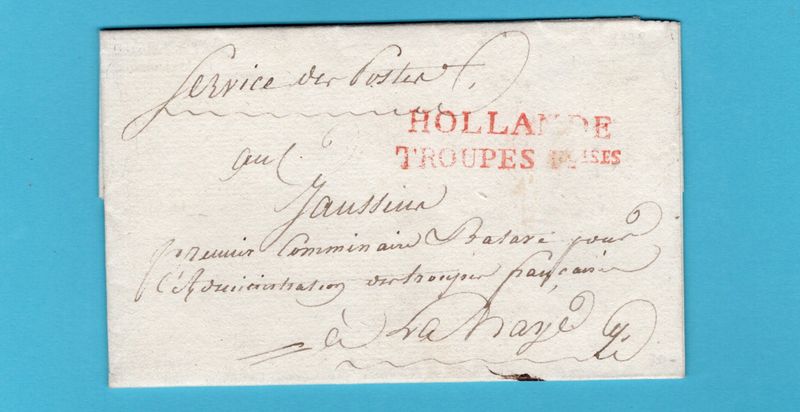 Service des Postes
HOLLANDE
TROUPES FSES
au C.
Jaussens
premier Commissaire Batave pour
l'administration des troupes françaises
à La Haye